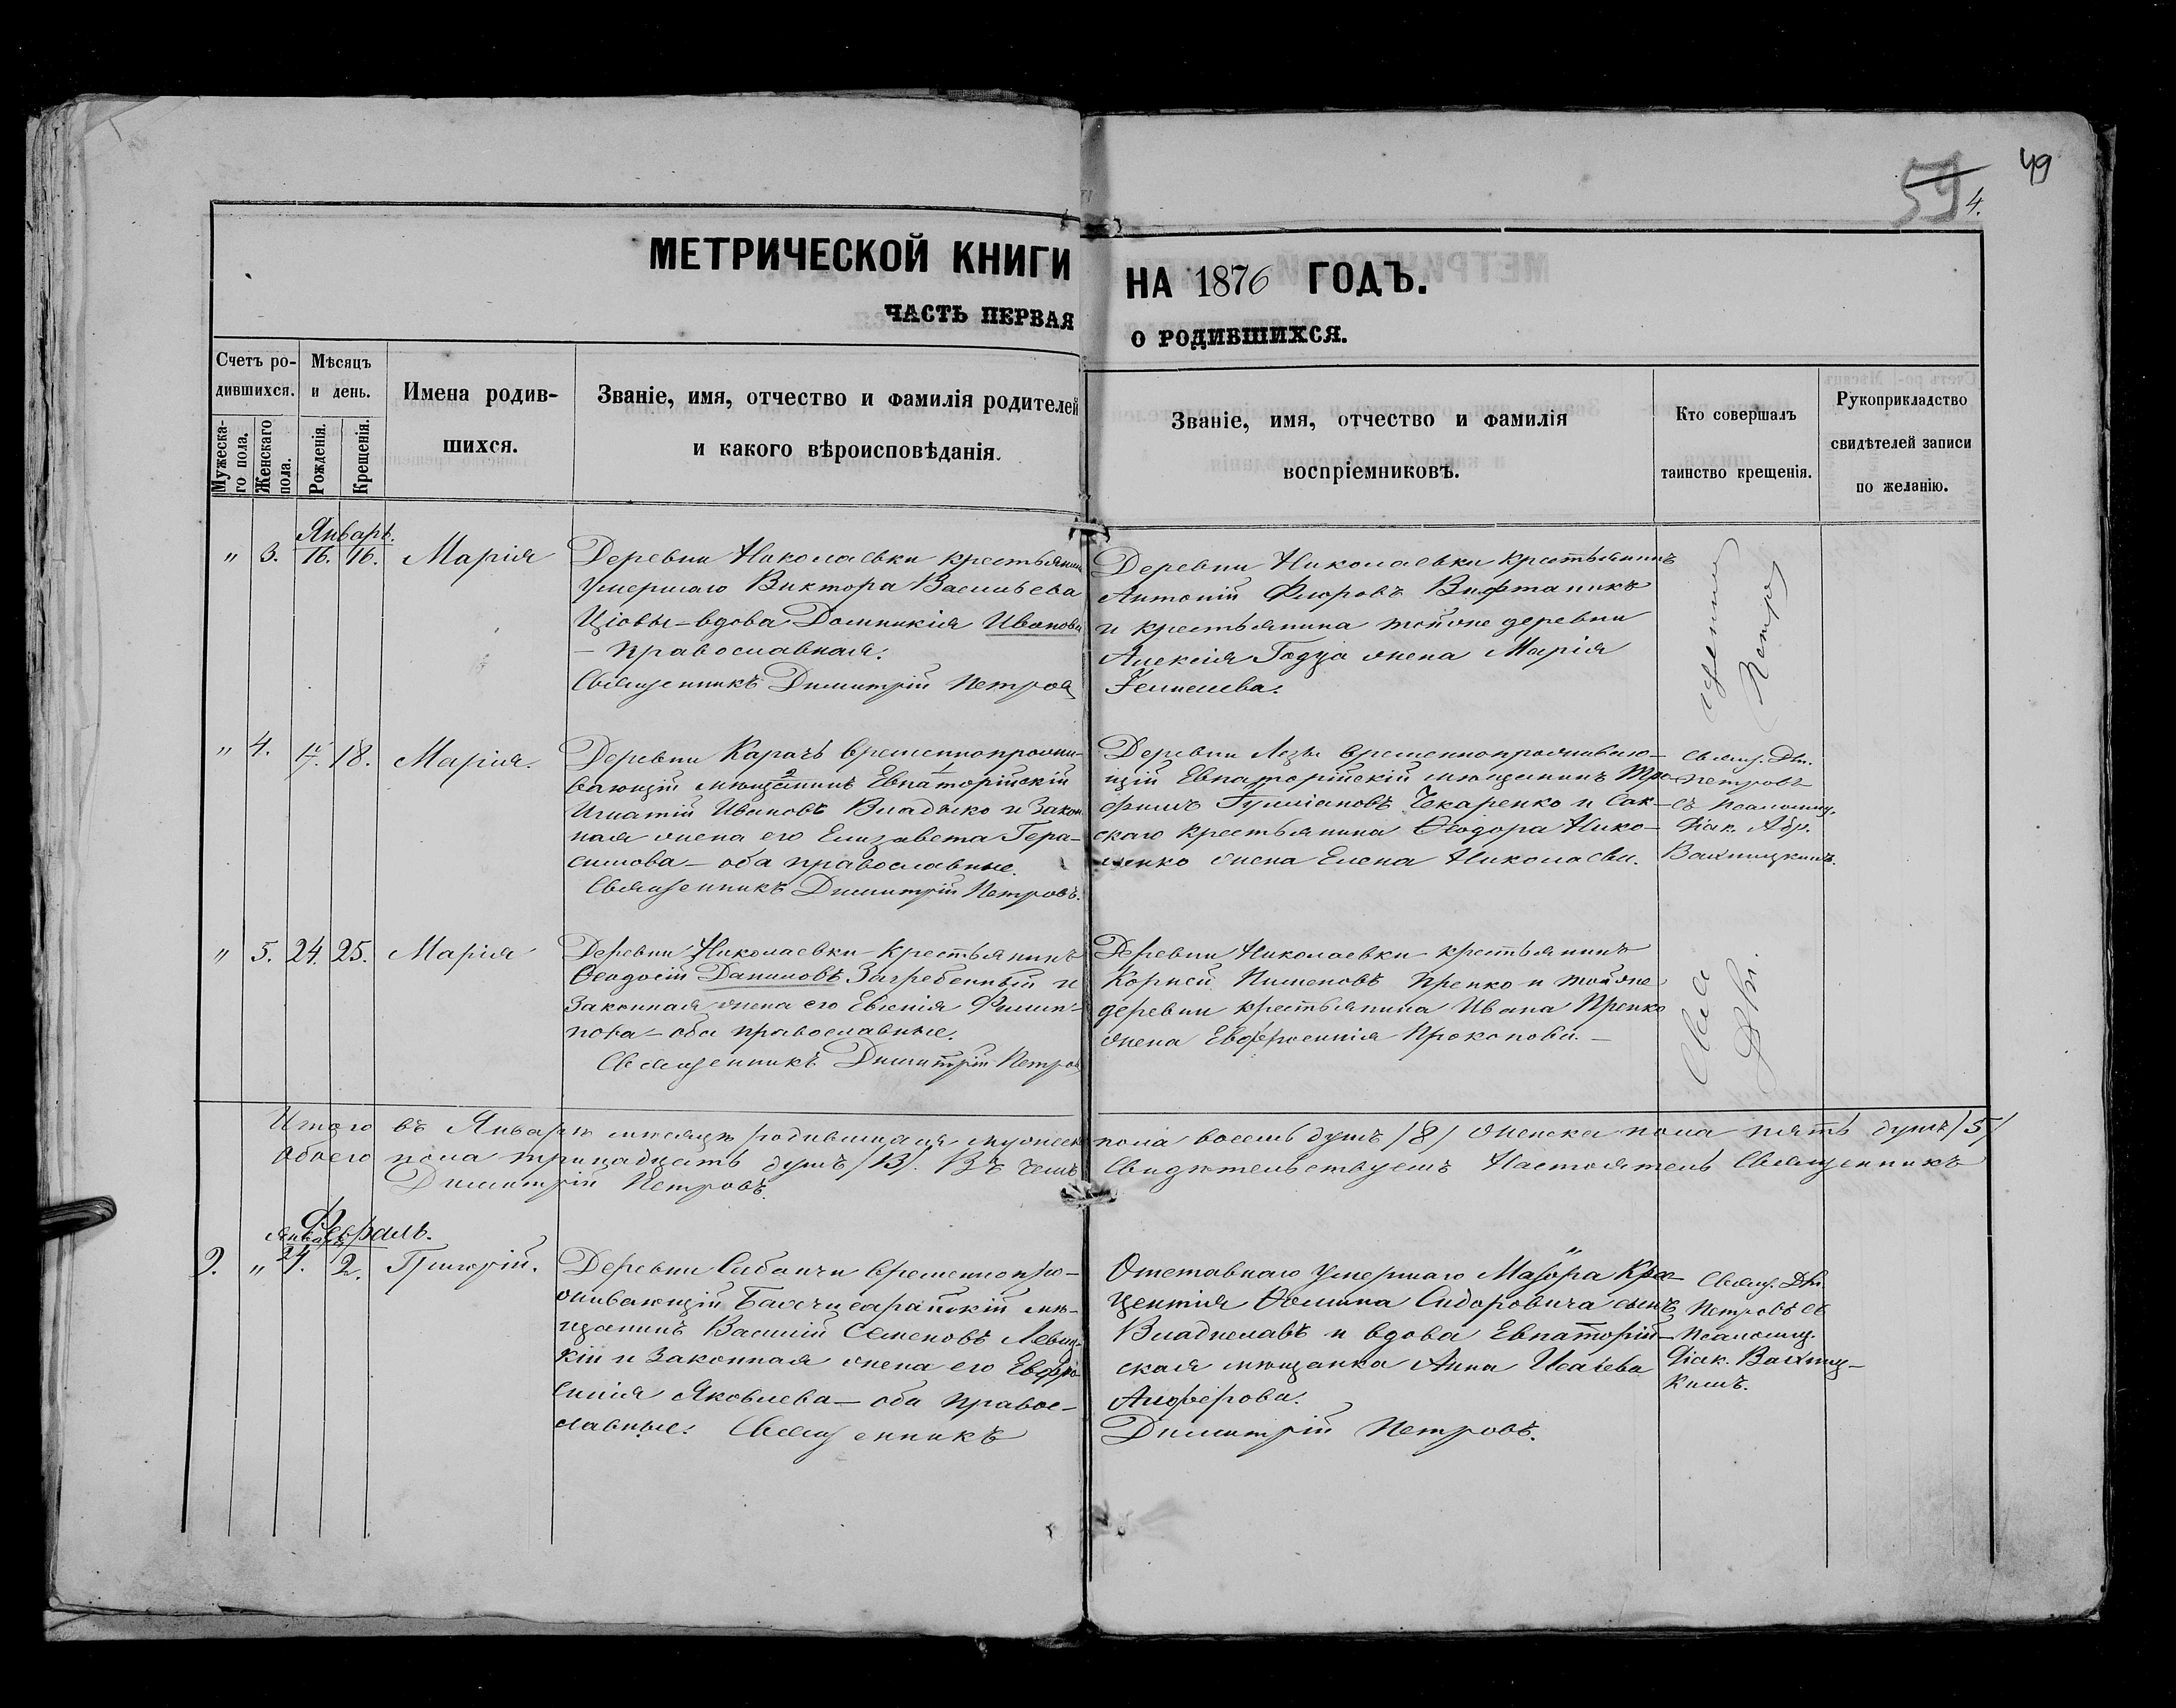 49
59
4.
МЕТРИЧЕСКОЙ КНИГИ НА 1876 ГОДЪ.
ЧАСТЬ ПЕРВАЯ О РОДИВШИХСЯ.
Счетъ ро-
дившихся.
Мужеска-
го пола.
Женскаго
пола.
Мѣсяцъ
и день.
Рожденія.
Крещенія.
Имена родив-
шихся.
Званіе, имя, отчество и фамилія родителей
и какого вѣроисповѣданія.
Званіе, имя, отчество и фамилія
воспріемниковъ.
Кто совершалъ
таинство крещенія.
Рукоприкладство
свидѣтелей записи
по желанію.
Январь.
" 3. 16. 16. Марія
Деревни Николаевки крестьянина
Умершаго Виктора Васильева
вдова Домникія Иванова
— православная.
Священникъ Димитрій Петровъ
Деревни Николаевки крестьянинъ
Антоній Флоровъ
и крестьянина тойже деревни
Алексія жена Марія
" 4. 17. 18. Марія.
Деревни Карачъ временнопрожи-
вающій мѣщанинъ Евпаторійскій
2 1
Игнатій Ивановъ Владыко и закон
ная жена его Елизавета Гера-
симова — оба православные.
Священникъ Димитрій Петровъ.
Деревни временнопроживаю-
щій Евпаторійскій мѣщанинъ Тро-
фимъ Чкаренко и Сак-
скаго крестьянина Ѳеодора Нико-
ленко жена Елена Николаева.
Свящ. Дим.
Петровъ
съ псаломщ.
Діак. Абр.
" 5. 24. 25. Марія
Деревни Николаевки крестьянинъ
Ѳеодосій Даниловъ Загребенный и
законная жена его Евгенія Филип-
пова — оба православные.
Священникъ Димитрій Петровъ
Деревни Николаевки крестьянинъ
Корней Пименовъ Препко и тойже
деревни крестьянина Ивана Препко
жена Евфросинія Прокопова. —
Итого въ Январѣ мѣсяцѣ родившихся мужеска пола восемь душъ /8/ женска пола пять душъ /5/
Обоего пола тринадцать душъ /13/. Въ чемъ свидѣтельствуетъ Настоятель Священникъ
Димитрій Петровъ.
Февраль.
Январь
9. " 24. 2. Григорій.
Деревни временнопро-
живающій Бахчисарайскій мѣ-
щанинъ Василій Семеновъ Левиц-
кій и законная жена его Евфро
синія Яковлева — оба право-
славные. Священникъ
Отставнаго умершаго Маіора
Сидоровича сынъ
Владиславъ и вдова Евпаторій-
ская мѣщанка Анна Исаіева
Алферова.
Димитрій Петровъ.
Свящ. Дм.
Петровъ съ
псаломщ.